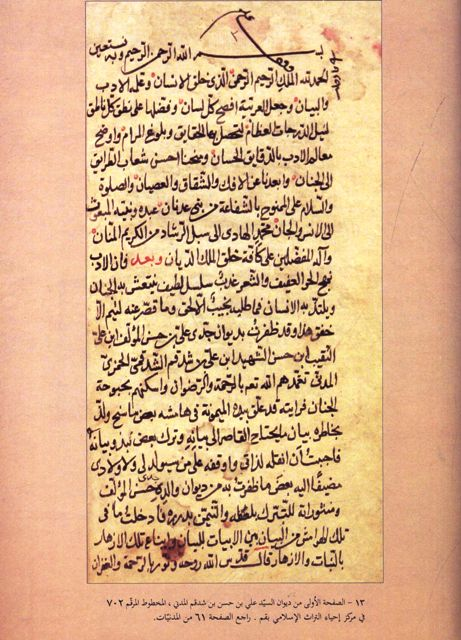 بسم الله الرحمن الرحيم وبه نستعين
الحمد لله الملك الرحيم الرحمن الذى خلق الانسان وعلمه الادب
والبيان وجعل العربية افصح كل لسان وفضلها على نطق كل ناطق
لنيل الدرجات العظام لتحصل بها الحقايق وبلوغ المرام واوضح
معالم الادب بالدقايق الحسان ومنحنا احسن شعاب الطرايق
الى الجنان وابعدنا عن الافك والشقاق والعصيان والصلوة
والسلام على الممنوح بالشفاعة من بنى عدنان عبده ونبيه المبعوث
الى الانس والجان محمد الهادى الى سبل الرشاد من الكريم المنان
وآله المفضلين على كافة خلق الملك الديان وبعد فان الادب
نهج الحر العفيف والشعر عذب سلسل لطيف ينتعش به الجنان
ويلتذ به الانسان فما طلبه نجيب الا لحق وما قصر عنه لئيم الا
خفق هذا وقد ظفرت بديوان جدى على بن حسن المؤلف ابن على
النقيب ابن حسن الشهيد ابن على بن شدقم الشدقمى الحمزى
المدنى تغمدهم الله تعم بالرحمة والرضوان واسكنهم بحبوحة
الجنان فرايته قد علق بيده الميمونة فى هامشه بعض ما سنح ولاح
بخاطره بيان ما يحتاج القاصر الى بيانه وترك بعض نبذ وبيانه
فاحببت ان انقله لذاتى واوقفه على من سيولد لى ولاولادى
مضيفًا اليه بعض ما ظفرت به من ديوان والدى جدى حسن المؤلف
ومنثوراته للتبرك بلفظه والتيمن بدرره فادخلت ما فى
تلك الهوامش من البيان بين الابيات للبيان وايناع تلك الازهار
بالنبات والازهار قال قدس الله روحه ونور بالرحمة والغفران
١٣ - الصفحة الأولى من ديوان السيّد علي بن حسن بن شدقم المدني ، المخطوط المرقّم ٧٠٢
في مركز إحياء التراث الإسلامي بقم . راجع الصفحة ٦١ من المدنيّات.